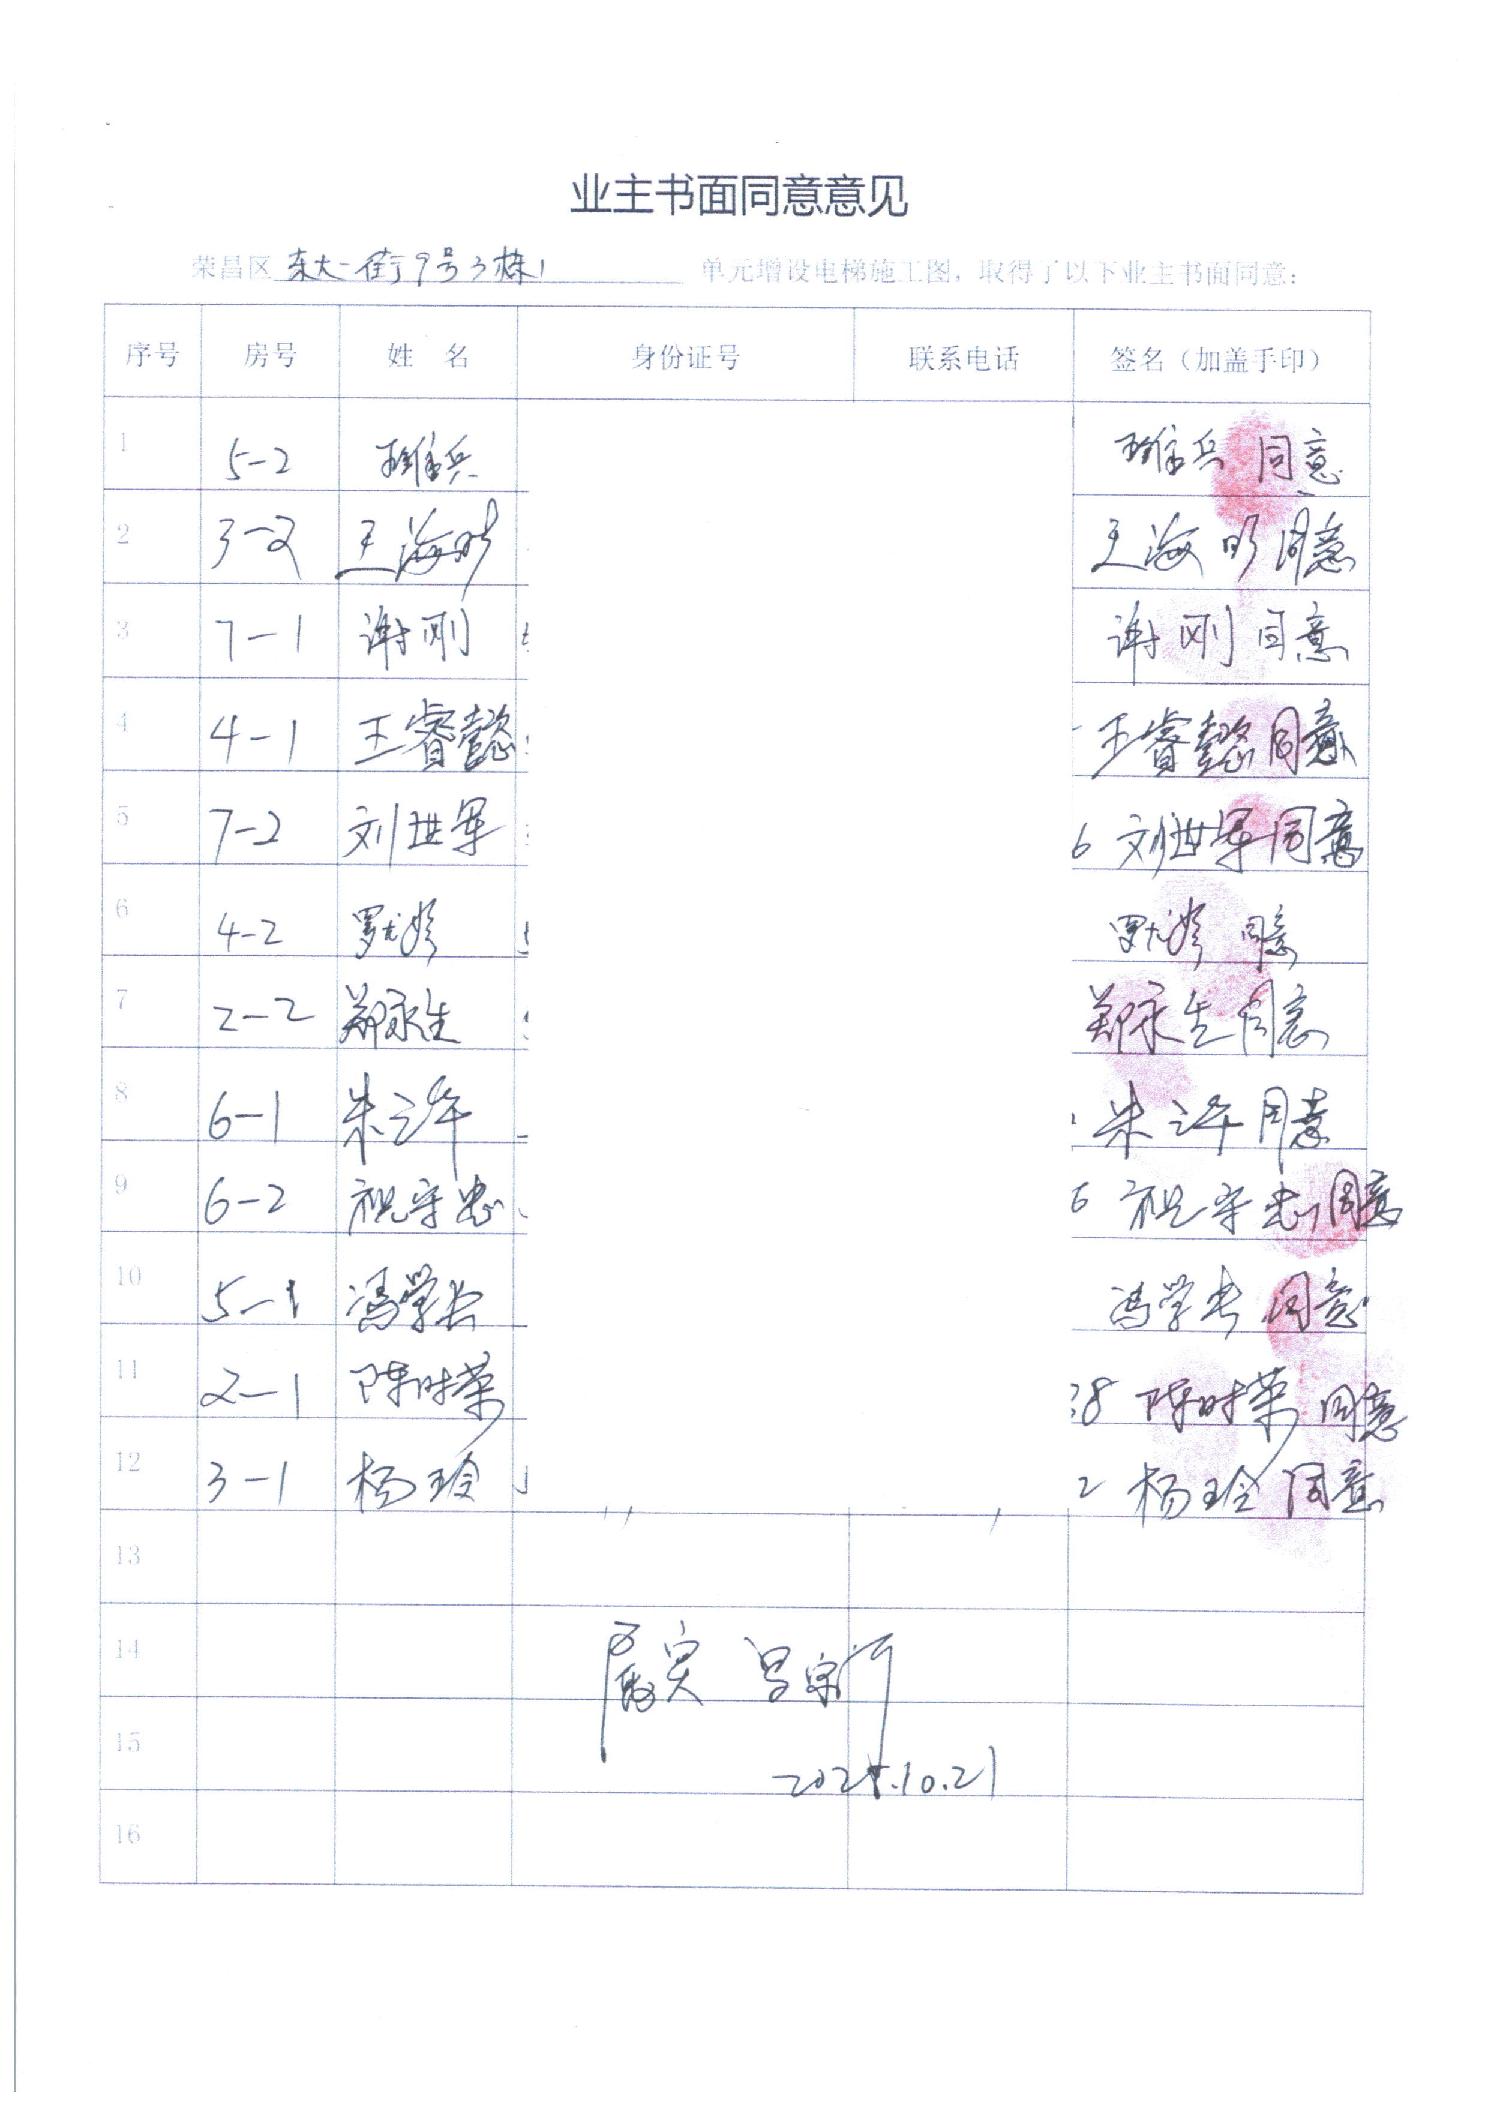 业主书面同意意见
荣昌区 东大一街9号3栋1 单元增设电梯施工图，取得了以下业主书面同意：
序号 房号 姓 名 身份证号 联系电话 签名（加盖手印）
1 5-2 兵 兵 同意
2 3-2 王海明 王海明 同意
3 7-1 谢刚 谢刚 同意
4 4-1 王睿懿 王睿懿 同意
5 7-2 刘世军 6 刘世军 同意
6 4-2 罗 罗 同意
7 2-2 郑永生 郑永生 同意
8 6-1 朱 朱 同意
9 6-2 祝守忠 6 祝守忠 同意
10 5-1 冯学 冯学 同意
11 2-1 陈时荣 38 陈时荣 同意
12 3-1 杨玲 2 杨玲 同意
13
14 属实 吕宗
15 2025.10.21
16